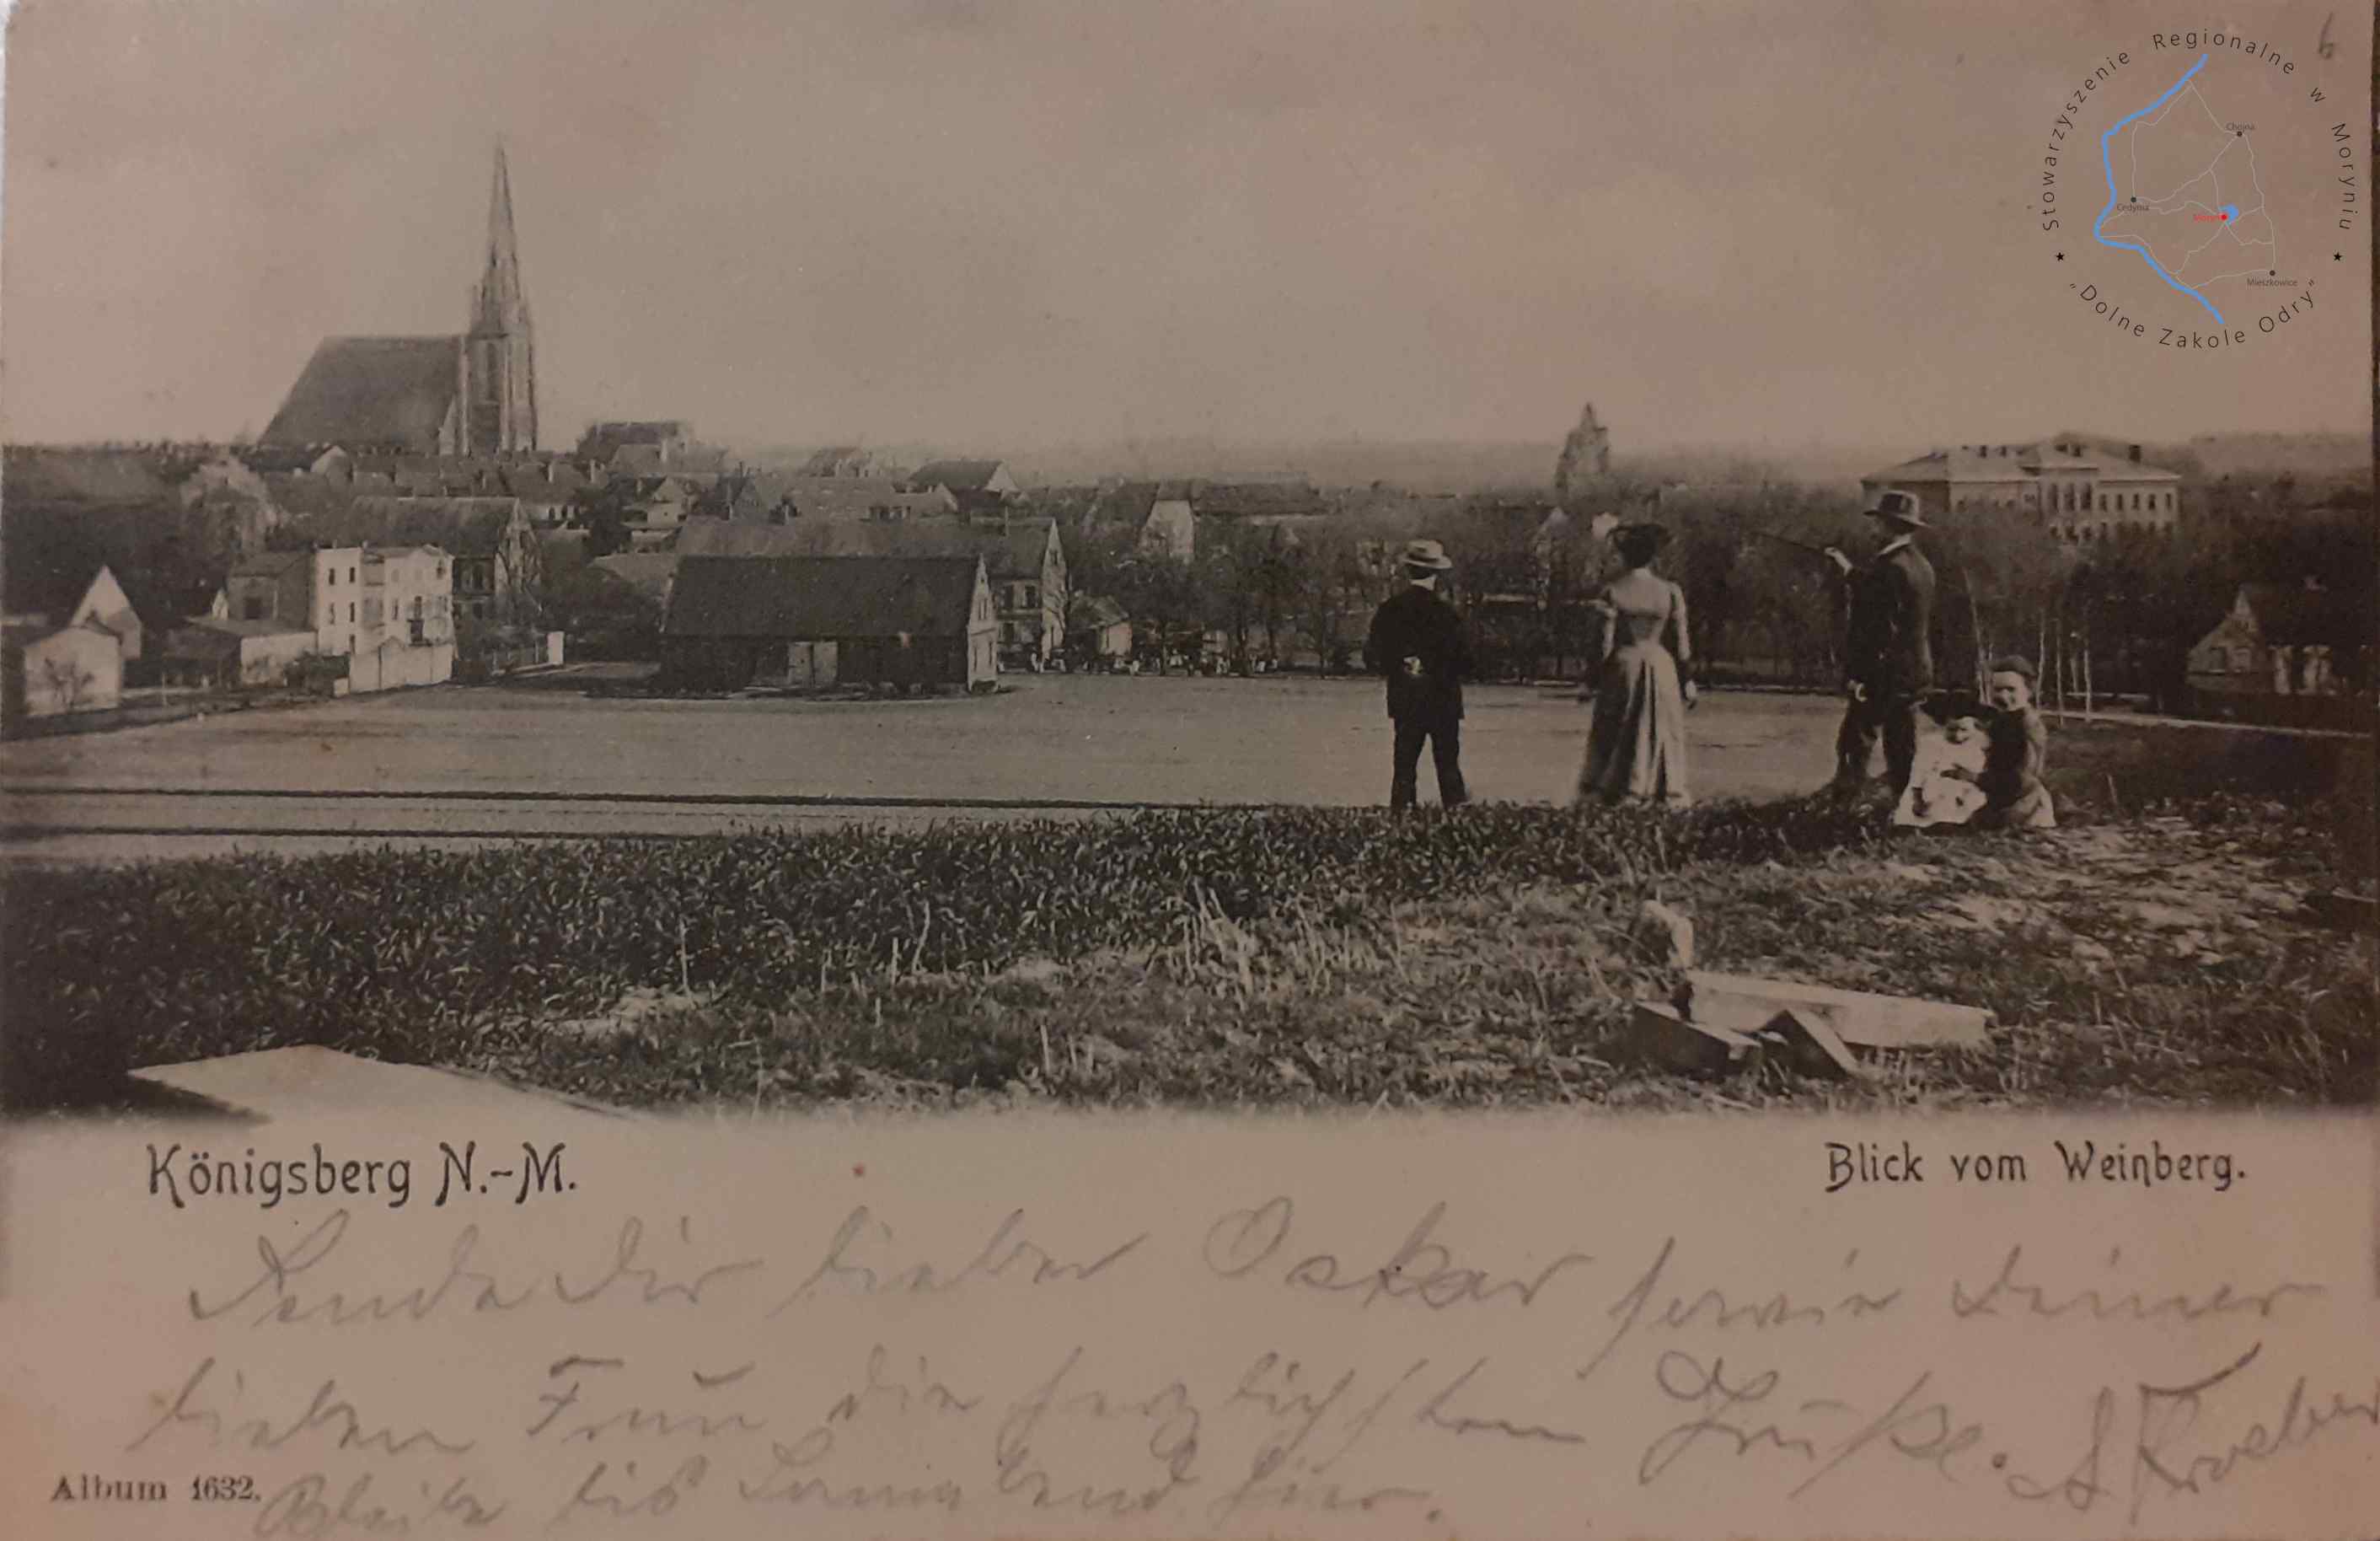 Stowarzyszenie Regionalne w Moryniu
Chojna
Cedynia
Moryń
Mieszkowice
„Dolne Zakole Odry”
Königsberg N.-M.
Blick vom Weinberg.
Sende Dir lieber Oskar sowie Deiner
lieben Frau die herzlichsten Grüße.
Bleibe bis Sonnabend hier.
Album 1632.